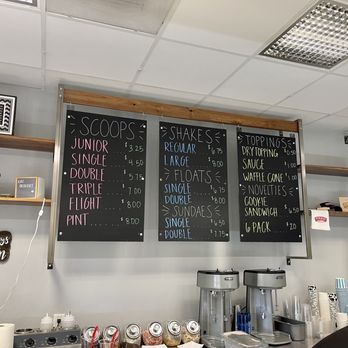 SCOOPS
JUNIOR $3.25
SINGLE $4.50
DOUBLE $5.75
TRIPLE $7.00
FLIGHT $8.00
PINT $8.00
SHAKES
REGULAR $6.75
LARGE $8.00
FLOATS
SINGLE $6.75
DOUBLE $8.00
SUNDAES
SINGLE $6.50
DOUBLE $7.75
TOPPINGS
DRY TOPPING
SAUCE $1.00
WAFFLE CONE $1.00
NOVELTIES
COOKIE
SANDWICH $6.50
6 PACK $20